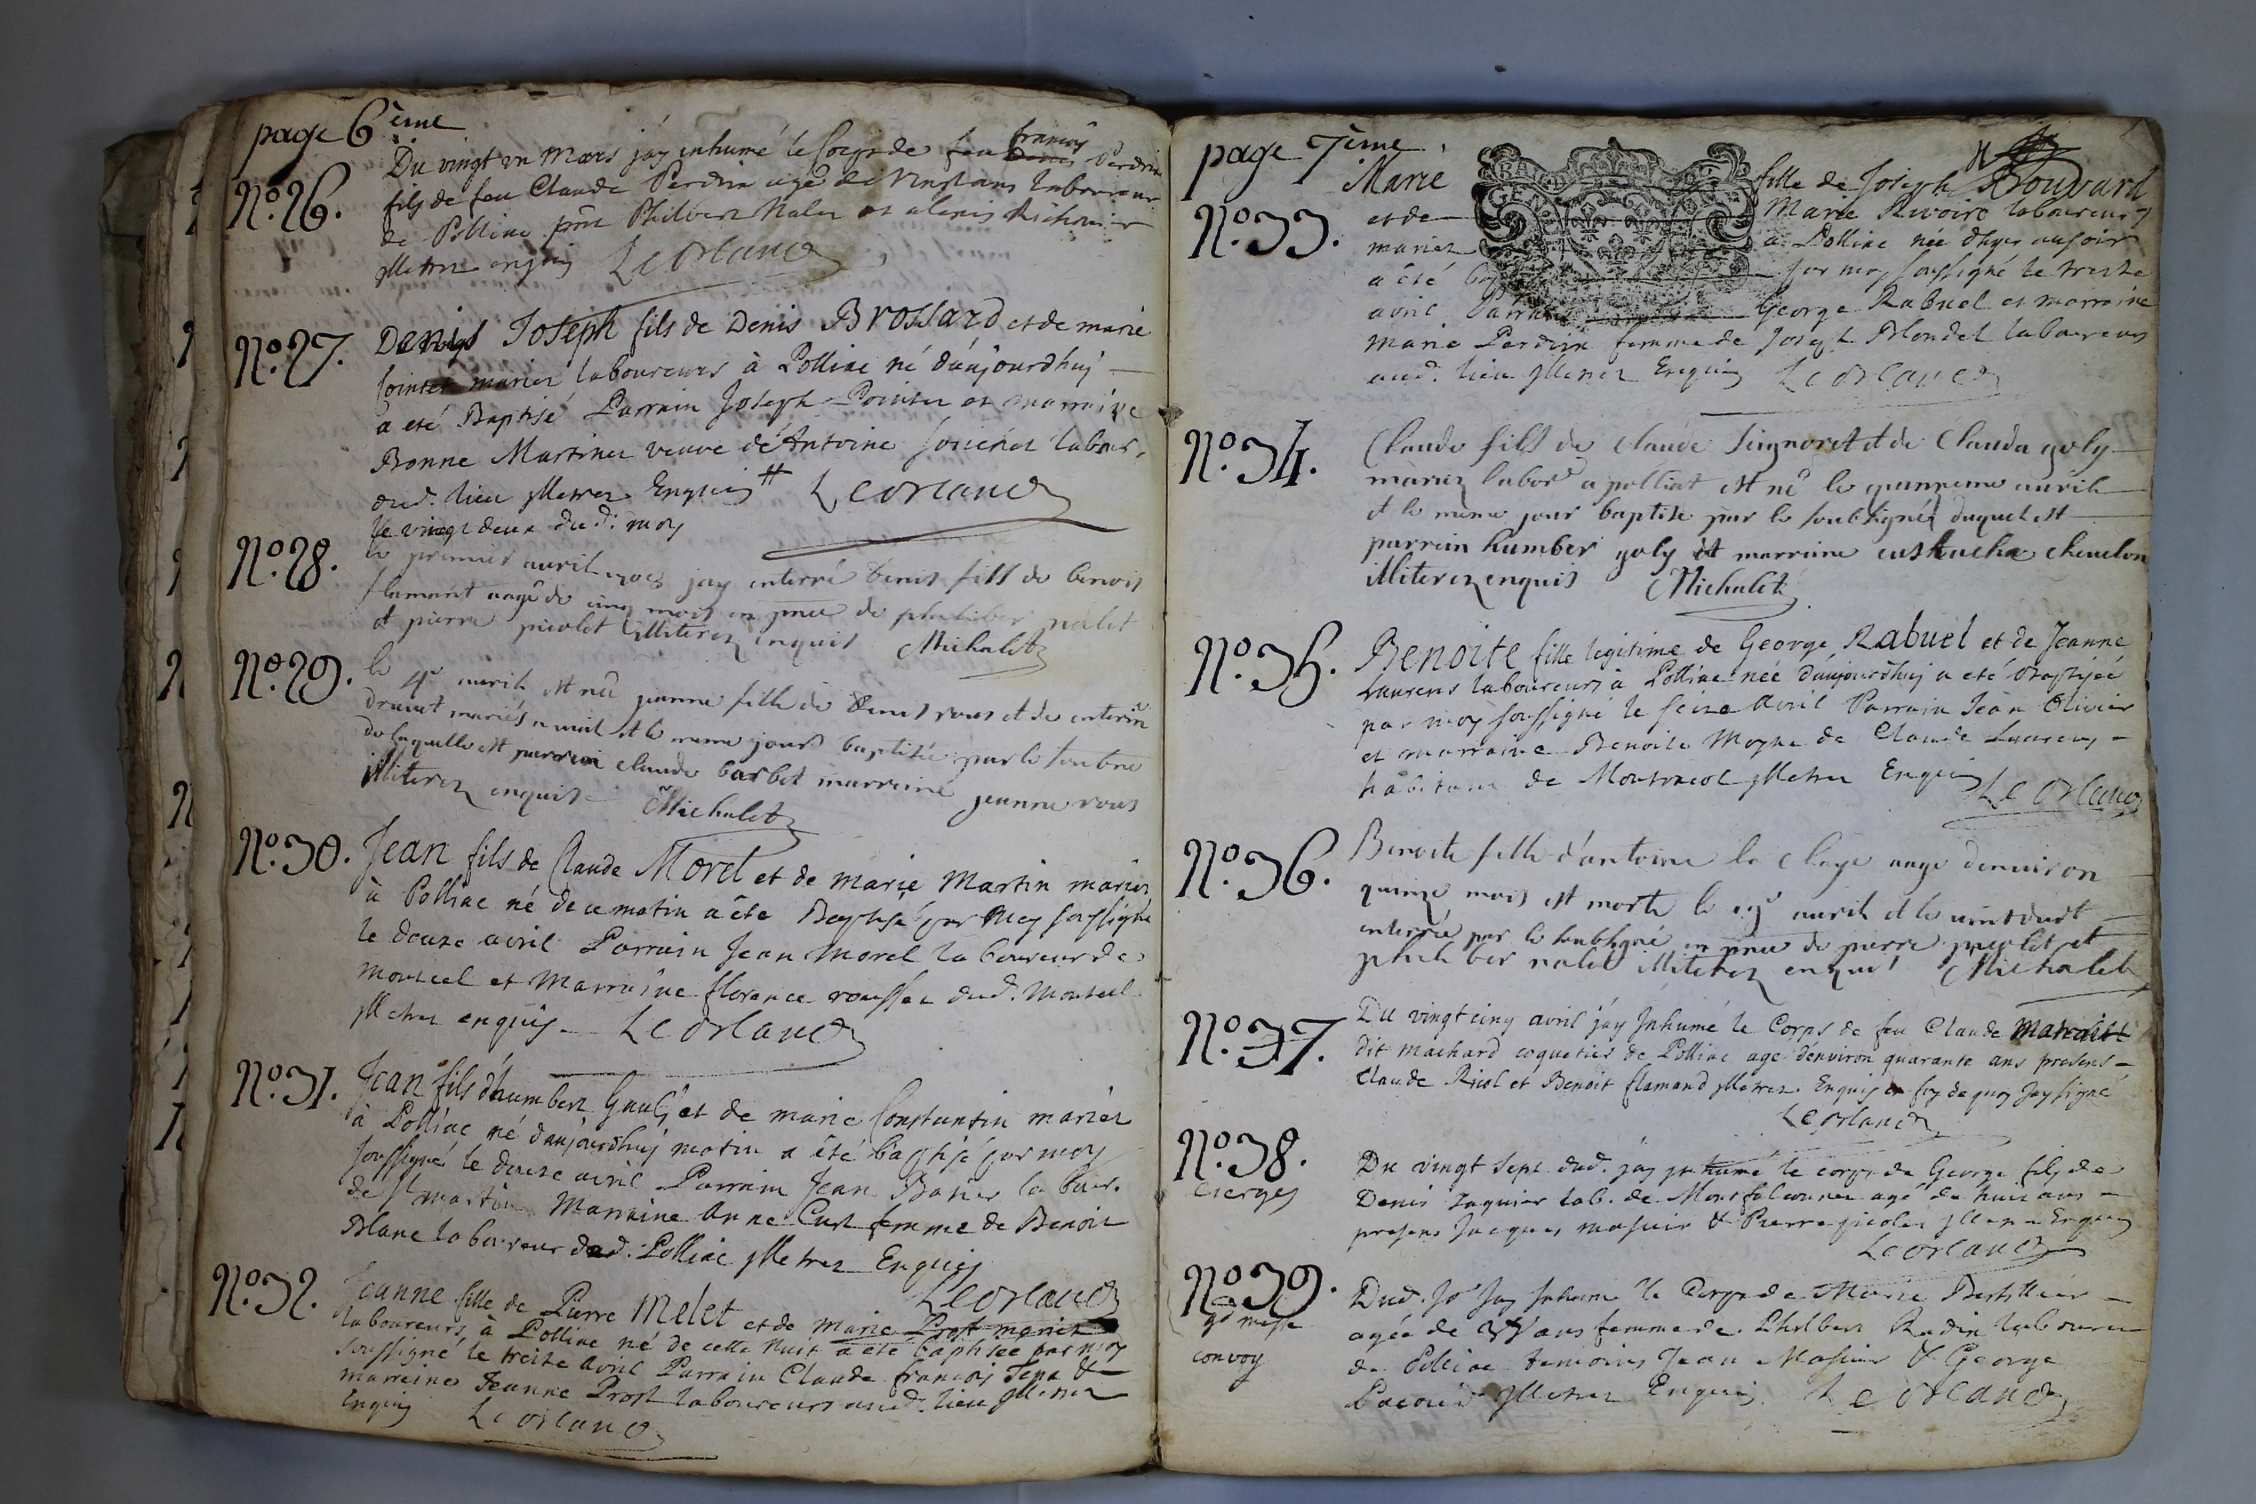 page 6ème
N°.26.
Du vingt un Mars j'ay inhumé le Corps de feu françois Perdrix
fils de feu Claude Perdrix agé de vingt ans laboureur
de Polliac Philibert Nalet et
illetrez enquis Leorland
N°.27.
Denis Joseph fils de Denis Brossard et de marie
mariez laboureurs à Polliac né daujourdhuy
a eté Baptisé Parrain Joseph Pointer et marraine
Bonne Martinez veuve de Antoine labour.
dud. lieu illetrez Enquis # Leorland
le vingt deux dud. moy
N°.28.
le premier auril jay enterré denis fils de benoit
flamant aagé de cinq mois en pnce de philiber nalet
et pierre picolet illiterez enquis Michalet
N°.29.
le 4e auril est née jeanne fille de denis rous et de
druuet mariés et le meme jour baptisée par le
de laquelle est parrein claude barbet marreine jeanne rous
illiterez enquis Michalet
N°.30.
Jean fils de Claude Morel et de marie Martin mariez
à Polliac né de ce matin a été Baptisé par moy soussigné
le douze avril Parrain Jean Morel laboureur de
monteel et Marraine florence roussée dud. Monteel
illetrez enquis Leorland
N°.31.
Jean fils d'humbert et de marie Constantin mariez
à Polliac né daujourdhuy matin a été baptisé par moy
soussigné le douze avril Parrain Jean labour.
de St martin Marraine Anne Curt femme de Benoit
Blanc laboureur dud. Polliac illetrez Enquis
Leorland
N°.32.
Jeanne fille de Pierre Melet et de marie Prost mariez
laboureurs à Polliac né de cette nuit a été baptisée par moy
soussigné le treize avril Parrain Claude françois &
marraine Jeanne Prost laboureurs aud. lieu illetrez
Enquis Leorland
page 7ème
N°.33.
Marie fille de Joseph Bouvard
et de Marie Rivoire laboureurs
mariez à Polliac née dhyer au soir
a été par moy soussigné le treize
avril Parrain George Rabuel et marraine
marie Perdrix femme de Joseph Blondel laboureurs
aud. lieu illetrez Enquis Leorland
N°.34.
Claude fils de claude Seignoret et de Clauda goly
mariez labor a polliat est né le auril
et le meme jour baptisé par le soubsigné duquel est
parrein humber goly et marreine eustache cheuelon
illiterez enquis Michalet
N°.35.
Benoite fille legitime de George Rabuel et de Jeanne
Laurens laboureurs à Polliac née daujourdhuy a eté Baptisée
par moy soussigné le seize avril Parrain Jean Olivier
et marraine Benoite Moyne de Claude Laurens
habitans de Montracol illetrez Enquis Leorland
N°.36.
Benoite fille d'antoine la aage denuiron
quinze mois est morte le 19e auril et le
enterrée par le soubsigné en pnce de pierre picolet et
philiber nalet illiterez enquis Michalet
N°.37.
Du vingt cinq avril j'ay Inhumé le Corps de feu Claude
dit machard coquetier de Polliac agé denviron quarante ans presens
Claude Ricol et Benoit flamand illetrez Enquis en foy de quoy Jay signé
Leorland
N°.38.
cierges
Du vingt Sept dud. j'ay inhumé le corps de George fils de
Denis Jaquier lab. de Monfalconnet agé de huit ans
presens Jacques masuir & Pierre picolet illetrez Enquis
Leorland
N°.39.
gd messe
convoy
Dud. Jr Jay Inhumé le Corps de Marie
agée de ans femme de Philbert Radix laboureur
de Polliac temoins Jean Masuir & George
Pacoud illetrez Enquis Leorland